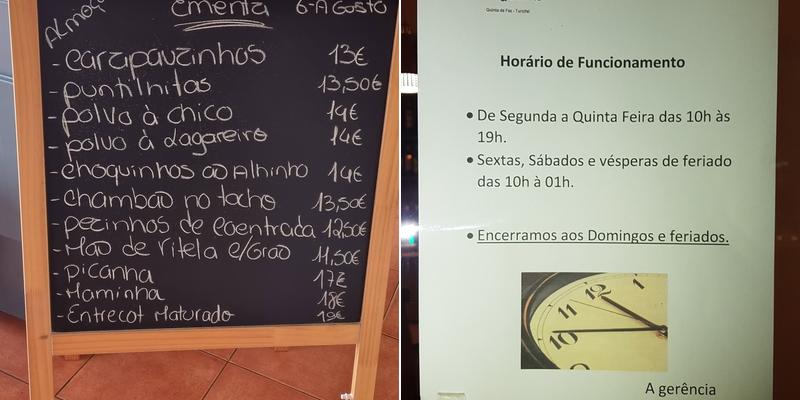 Almoço
Ementa 6-Agosto
- carapauzinhos 13€
- puntilhitas 13,50€
- polvo à chico 14€
- polvo à lagareiro 14€
- choquinhos ao Alhinho 14€
- chambão no tacho 13,50€
- pezinhos de coentrada 12,50€
- Mão de Vitela c/Grão 11,50€
- Picanha 17€
- Maminha 18€
- Entrecot Maturado 19€
Quinta da Paz - Turichel
Horário de Funcionamento
• De Segunda a Quinta Feira das 10h às
19h.
• Sextas, Sábados e vésperas de feriado
das 10h à 01h.
• Encerramos aos Domingos e feriados.
1
12
11
10
A gerência